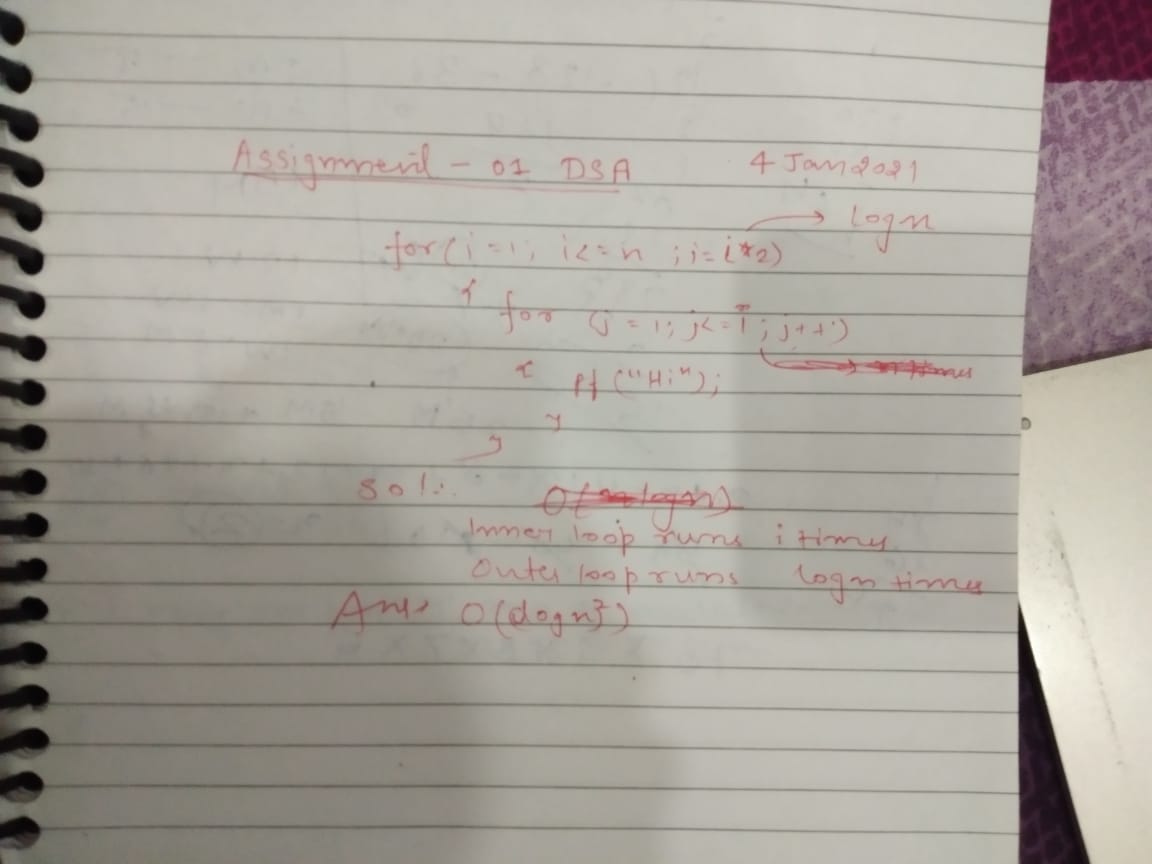 Assignment - 01 DSA 4 Jan 2021
→ logn
for(i=1; i<=n ;i=i*2)
{
for (j=1; j<=i; j++)
{ Pf ("Hi");
}
}
Sol:.
Inner loop runs i times
Outer loop runs logn times
Ans O(logn²)